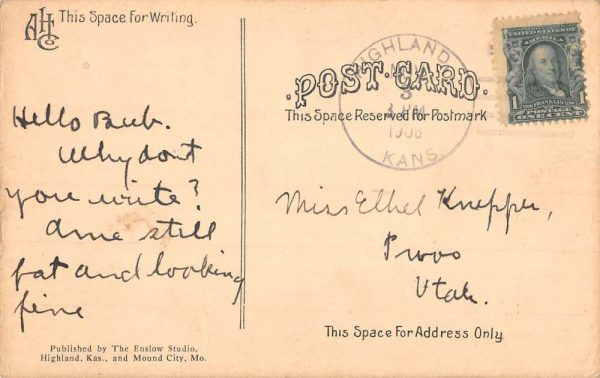 AHCo
This Space For Writing.
HIGHLAND
3
1908
KANS.
POST CARD.
This Space Reserved For Postmark
UNITED STATES OF AMERICA
1
FRANKLIN
POSTAGE
ONE CENT
Hello Bub.
Why dont
you write?
Ame still
fat and looking
fine
Miss Ethel Knepper,
Provo
Utah.
This Space For Address Only.
Published by The Enslow Studio,
Highland, Kas., and Mound City, Mo.